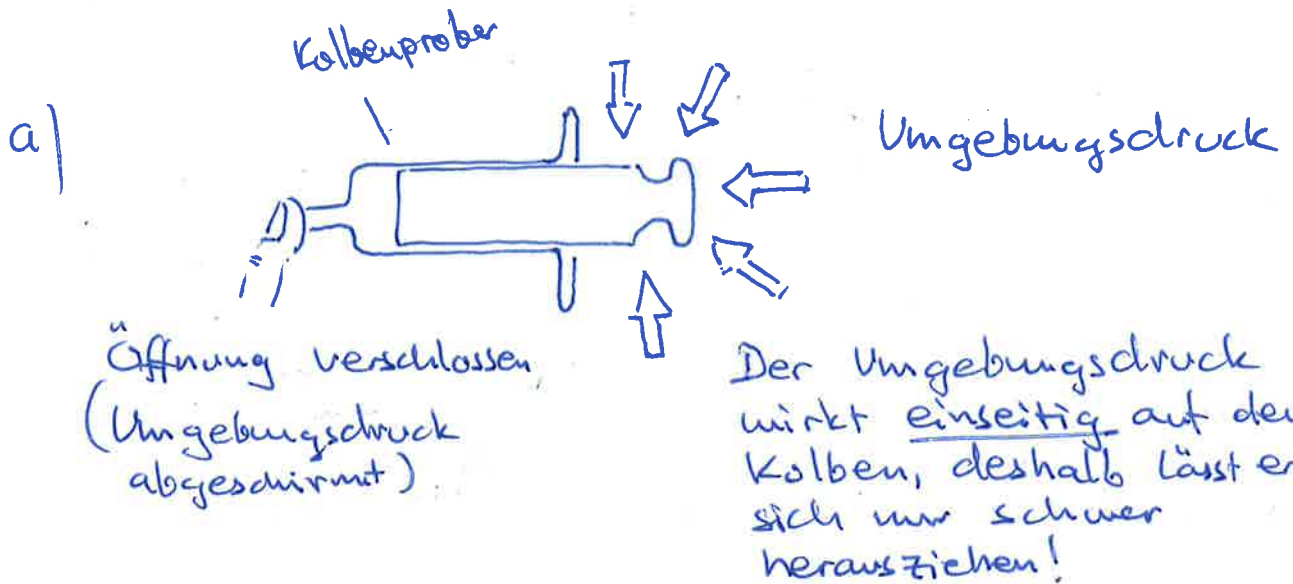 Kolbenprober
a)
Umgebungsdruck
Öffnung verschlossen
(Umgebungsdruck
abgeschirmt)
Der Umgebungsdruck
wirkt einseitig auf den
Kolben, deshalb lässt er
sich nur schwer
herausziehen!